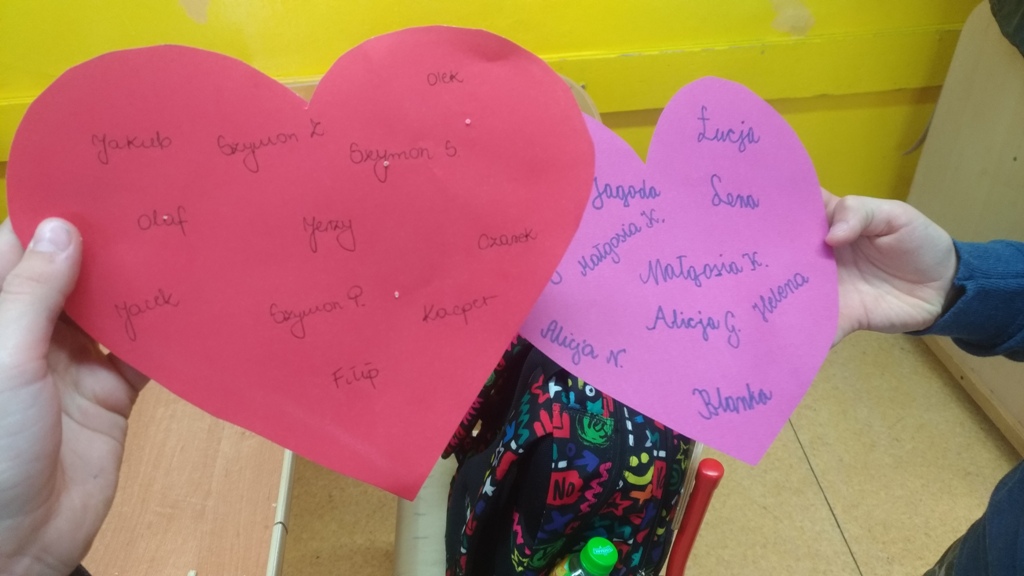 Olek
Jakub
Szymon Z
Szymon S.
Olaf
Jerzy
Czarek
Jacek
Szymon P.
Kacper
Filip
Łucja
Jagoda
Lena
Małgosia K.
Małgosia K.
Helena
Alicja G.
Alicja N.
Blanka
NO